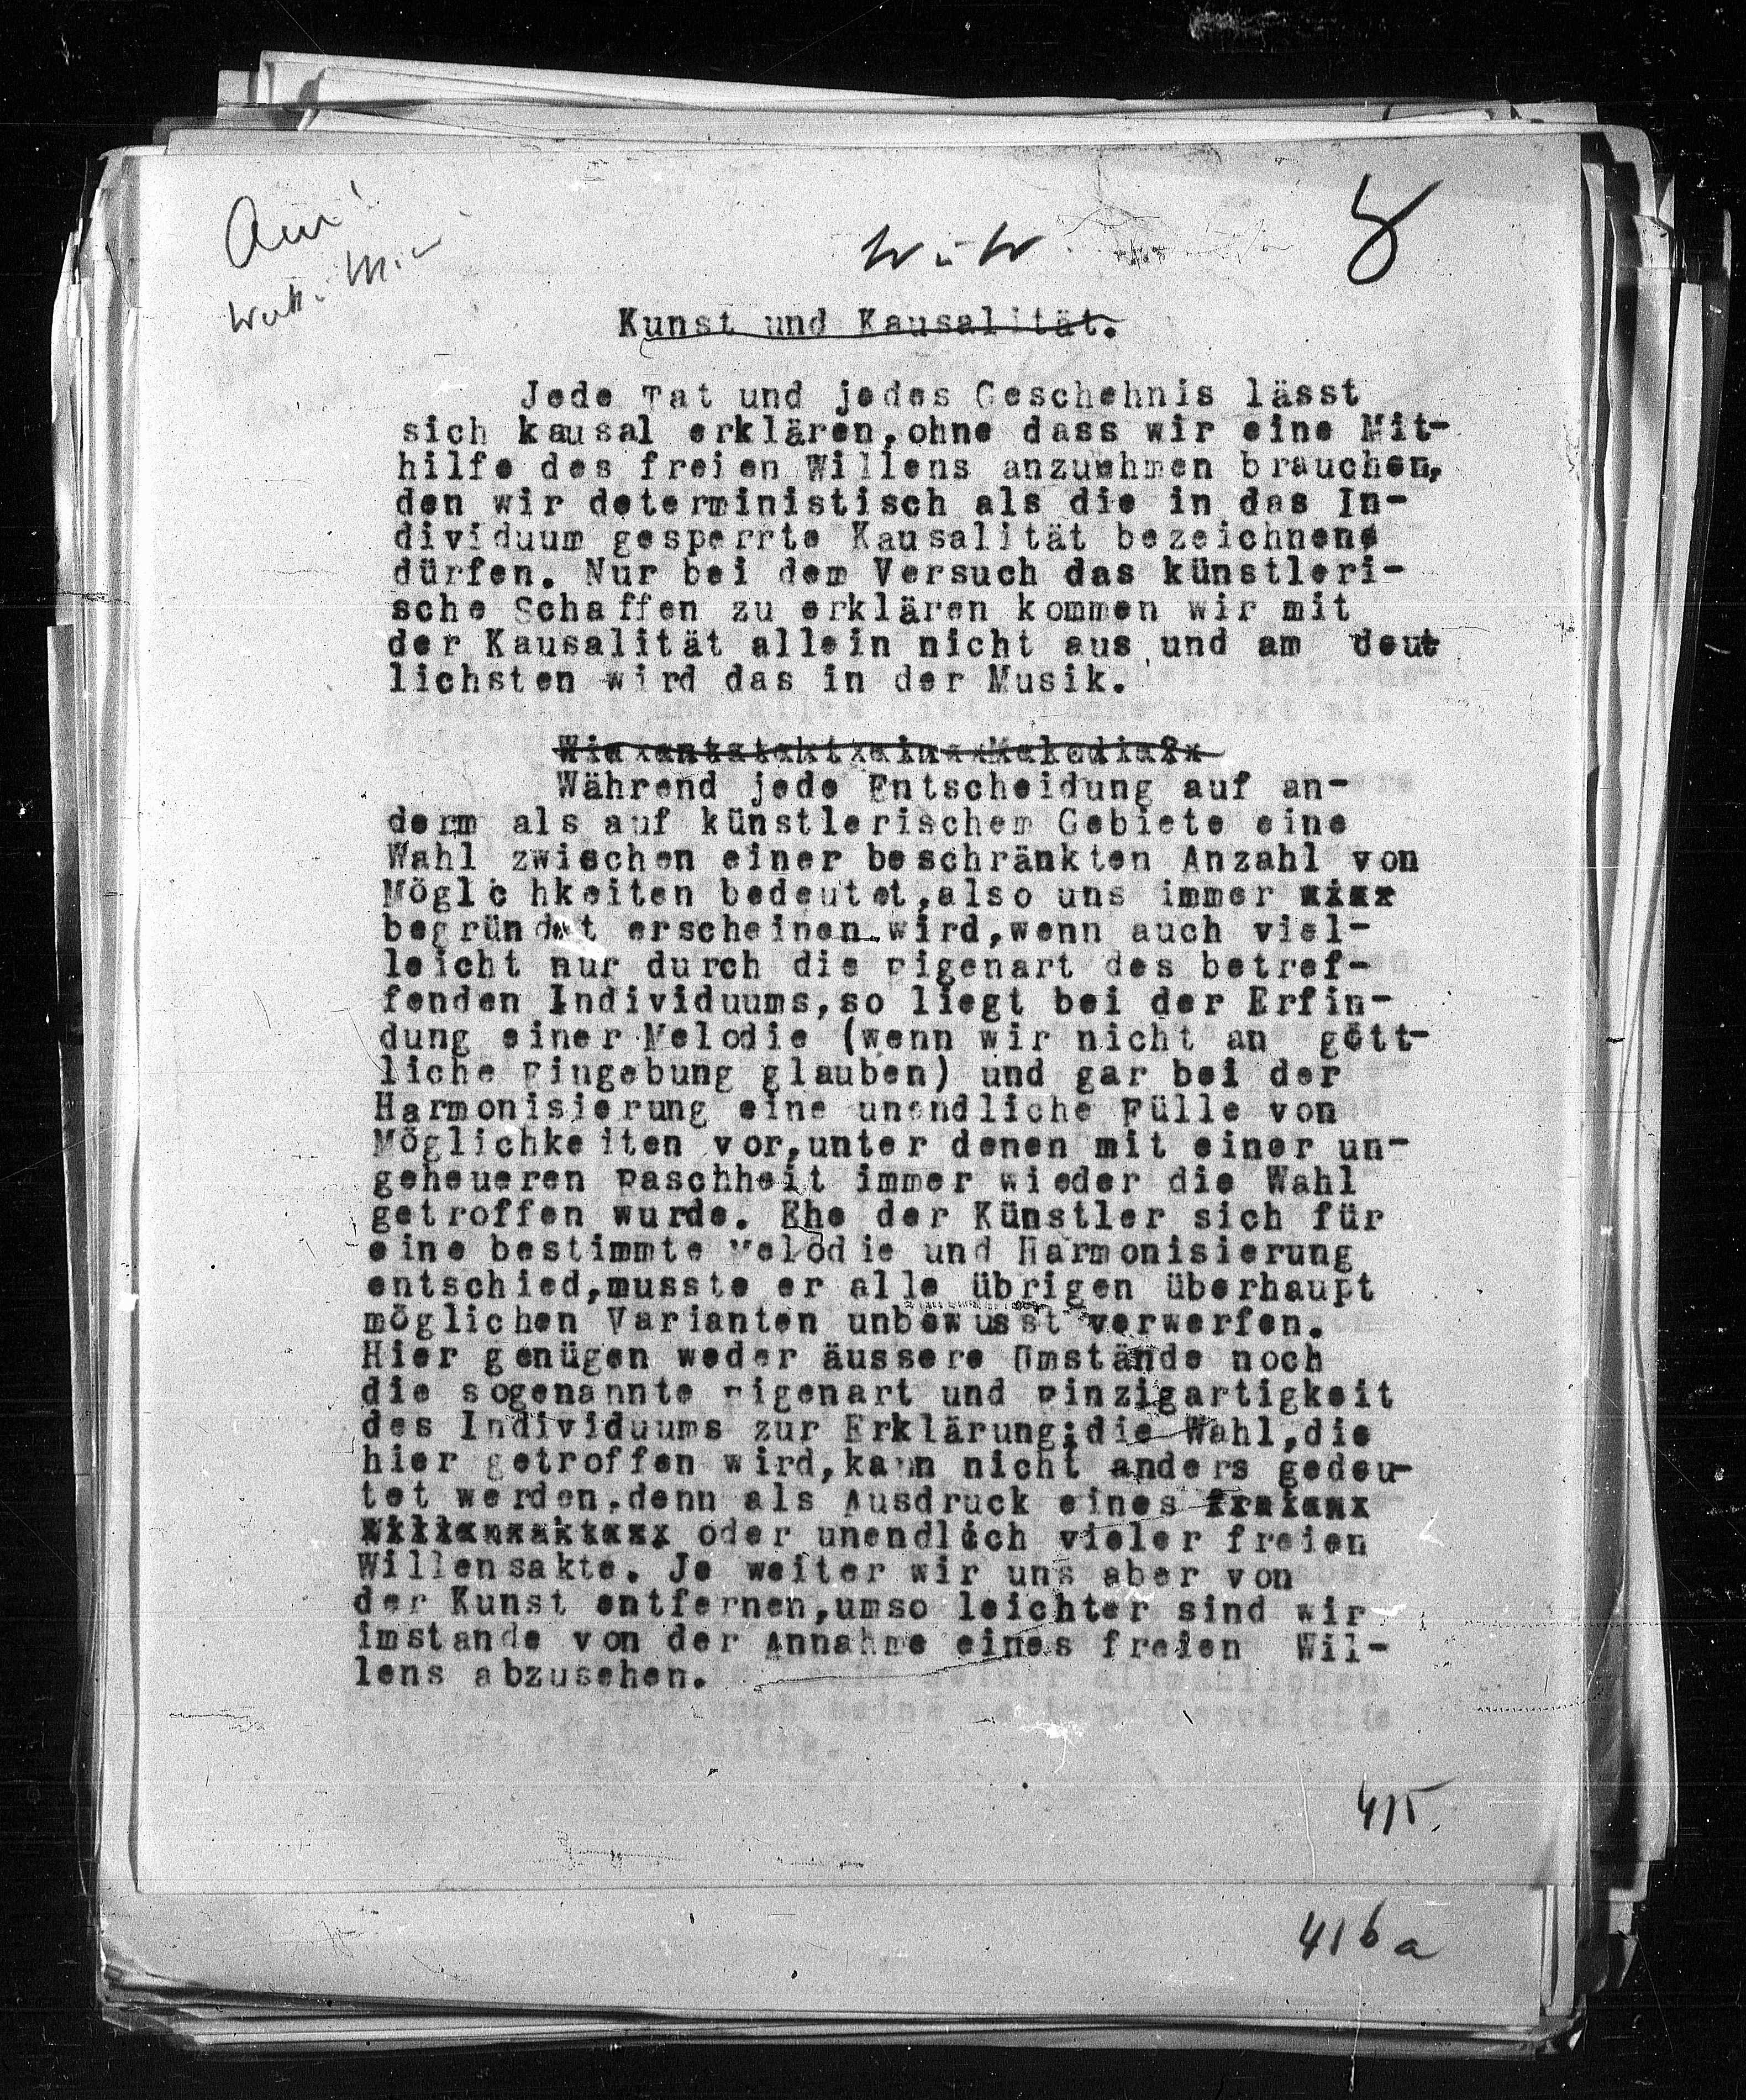 8
Kunst und Kausalität.
Jede Tat und jedes Geschehnis lässt
sich kausal erklären,ohne dass wir eine Mit-
hilfe des freien Willens anzunehmen brauchen,
den wir deterministisch als die in das In-
dividuum gesperrte Kausalität bezeichnen
dürfen. Nur bei dem Versuch das künstleri-
sche Schaffen zu erklären kommen wir mit
der Kausalität allein nicht aus und am deut
lichsten wird das in der Musik.
Wie entsteht eine Melodie?
Während jede Entscheidung auf an-
derm als auf künstlerischem Gebiete eine
Wahl zwischen einer beschränkten Anzahl von
Möglchkeiten bedeutet,also uns immer
begründet erscheinen wird,wenn auch viel-
leicht nur durch die Eigenart des betref-
fenden Individuums,so liegt bei der Erfin-
dung einer Melodie (wenn wir nicht an gött-
liche Eingebung glauben) und gar bei der
Harmonisierung eine unendliche Fülle von
Möglichkeiten vor,unter denen mit einer un-
geheueren Raschheit immer wieder die Wahl
getroffen wurde. Ehe der Künstler sich für
eine bestimmte Melodie und Harmonisierung
entschied,musste er alle übrigen überhaupt
möglichen Varianten unbewusst verwerfen.
Hier genügen weder äussere Umstände noch
die sogenannte Eigenart und Einzigartigkeit
des Individuums zur Erklärung;die Wahl,die
hier getroffen wird,kann nicht anders gedeu-
tet werden,denn als Ausdruck eines freien
Willensaktes oder unendlich vieler freien
Willensakte. Je weiter wir uns aber von
der Kunst entfernen,umso leichter sind wir
imstande von der Annahme eines freien Wil-
lens abzusehen.
415.
416a